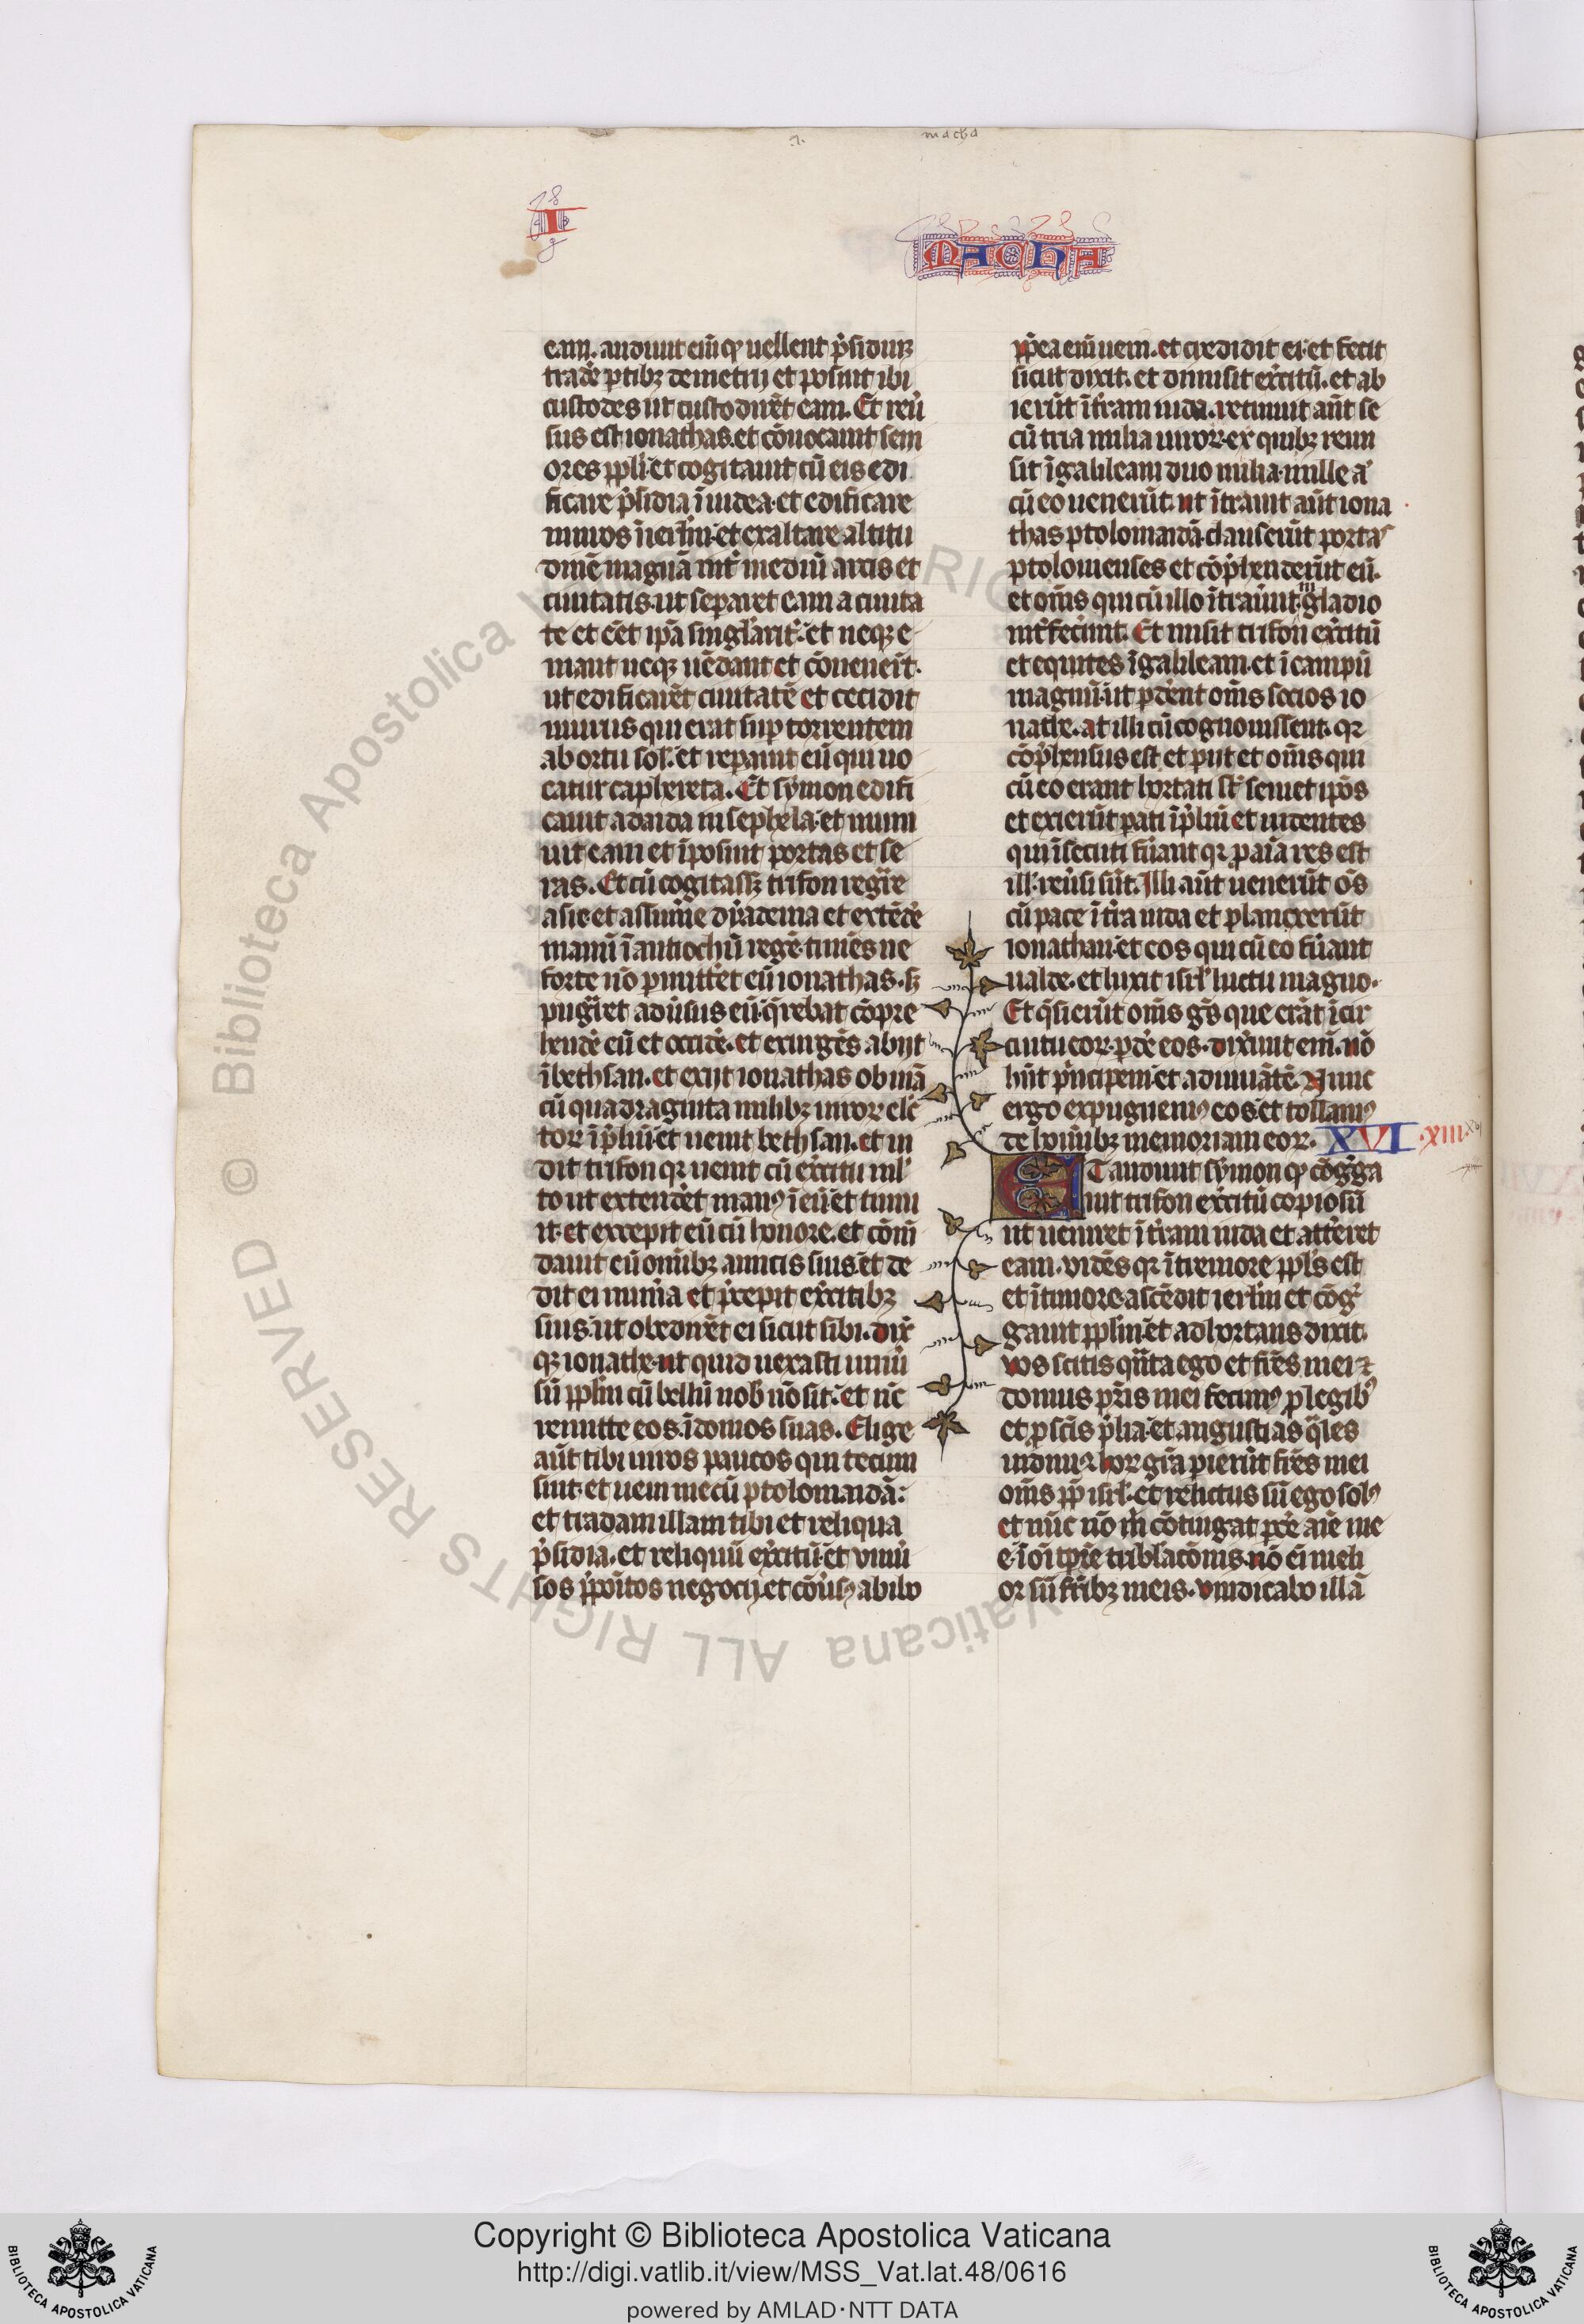 macha
I
MACHA
eam. audiuit eni͂ qͥ uellent p̃sidiuꝫ
trade᷒ ptibꝫ demetrij et posuit ibi
custodes ut custodirēt eam. Et reu᷒
sus est ionathas. et cōuocauit seni
ores ppli. et cogitauit cū eis edi
ficare p̃sidia ī iudea. et edificare
muros ī ierlm̄. et exaltare altitu
dinē magnā int᷒ mediū arcis et
ciuitatis. ut separet eam a ciuita
te et eēt ip̄a singl᷒arit᷒. et neqꝫ e
mant neqꝫ uēdant et cōuenert̄.
ut edificarēt ciuitatē et cecidit
murus qui erat sup torrentem
ab ortu sol᷒. et repauit eū qui uo
catur caphetetha. Et symon edifi
cauit adaida in sephela. et muni
uit eam et īposuit portas et se
ras. Et cū cogitassꝫ trifon regn̄re
asie. et assume᷒ dyadema et extēde᷒
manū ī antiochū regē. timēs ne
forte nō pmitte᷒t eū ionathas. sꝫ
pugn̄ret adu᷒sus eū. q̄rebat cōpre
hende᷒ eū et occide᷒. et exurgēs abijt
ī bethsan. et exijt ionathas obuiā
cū quadraginta milibꝫ uiroꝝ elc̄
toꝝ ī p̃liū. et uenit bethsan. et ui
dit trifon qꝛ uenit cū exc᷒itu ml᷒
to ut extende᷒t manꝰ ī eū. et timu
it. et excepit eū cū honore. et cōm̄
dauit eū omībꝫ amicis suis. et de
dit ei mun᷒a et p̃cepit exc᷒itibꝫ
suis. ut obedirēt ei sicut sibi. dix᷒
qꝫ ionathe. ut quid uexasti uniu᷒
sū pplm̄ cū bellū nob᷒ nō sit. et nc̄
remitte eos ī domos suas. Elige
aūt tibi uiros paucos qui tecum
sint. et ueni mecū ptolomaidā.
et tradam illam tibi et reliqua
p̃sidia. et reliquū exc᷒itū. et uniu᷒
sos p̃positos negocij. et cōu᷒sꝰ abibo
ppea eni͂ ueni. et credidit ei. et fecit
sicut dixit. et dimisit exc᷒itū. et ab
ierūt ī t᷒ram iuda. retinuit aūt se
cū tria milia uiroꝝ. ex quibꝫ remi
sit ī galileam duo milia. mille a᷒
cū eo uenerūt. ut ītrauit aūt iona
thas ptolomaidā. clauserūt portas
ptolomenses et cōp̃henderūt eū.
et om̄s qui cū illo ītrau᷒unt. gladio
int᷒fec᷒unt. Et misit trifon exc᷒itū
et equites ī galileam. et ī campū
magnū. ut pde᷒nt om̄s socios io
nathe. at illi cū cognouissent. qꝛ
cōp̃hensus est et pijt et om̄s qui
cū eo erant hortati st᷒ semet ip̄os
et exierūt pati ī p̃liū et uidentes
qui īsecuti fu᷒ant qꝛ p aīa res est
ill᷒. reu᷒si sūt. Illi aūt uenerūt oēs
cū pace ī t᷒ra iuda et planxerūt
ionathan. et eos qui cū eo fu᷒ant
ualde. et luxit isrl᷒ luctu magno.
Et q̄sierūt om̄s gn̄s que erāt ī cir
cuitu eoꝝ. pde᷒ eos. dix᷒unt eni͂. nō
hn̄t p̃ncipem. et adiuuātē. Nunc
ergo expugnemꝰ eos. et tollamꝰ
de hoīmibꝫ memoriam eoꝝ. XVI .XIII.
ET audiuit symon qͥ cōg᷒ga
uit trifon exc᷒itū copiosū
ut ueniret ī t᷒ram iuda et atte᷒ret
eam. uidēs qꝛ ī tremore ppls᷒ est
et ī timore. ascēdit ierlm̄ et cōg᷒
gauit pplm̄. et adhortans dixit.
uos scitis qn̄ta ego et fr̄es mei ⁊
domus pr̄is mei fecimꝰ p legibꝰ
et p sc̄is p̃lia. et angustias q̄les
uidimꝰ. hoꝝ gr̄a pierūt fr̄es mei
om̄s pp isrl᷒. et relictus sū ego solꝰ
et nūc nō m̄ cōtingat pce᷒ aīe me
e. ī oī tp̄re tribl᷒acōnis. nō eni͂ meli
or sū fr̄ibꝫ meis. uindicabo illā
Copyright © Biblioteca Apostolica Vaticana
http://digi.vatlib.it/view/MSS_Vat.lat.48/0616
powered by AMLAD·NTT DATA
BIBLIOTECA APOSTOLICA VATICANA
BIBLIOTECA APOSTOLICA VATICANA
© Biblioteca Apostolica Vaticana ALL RIGHTS RESERVED